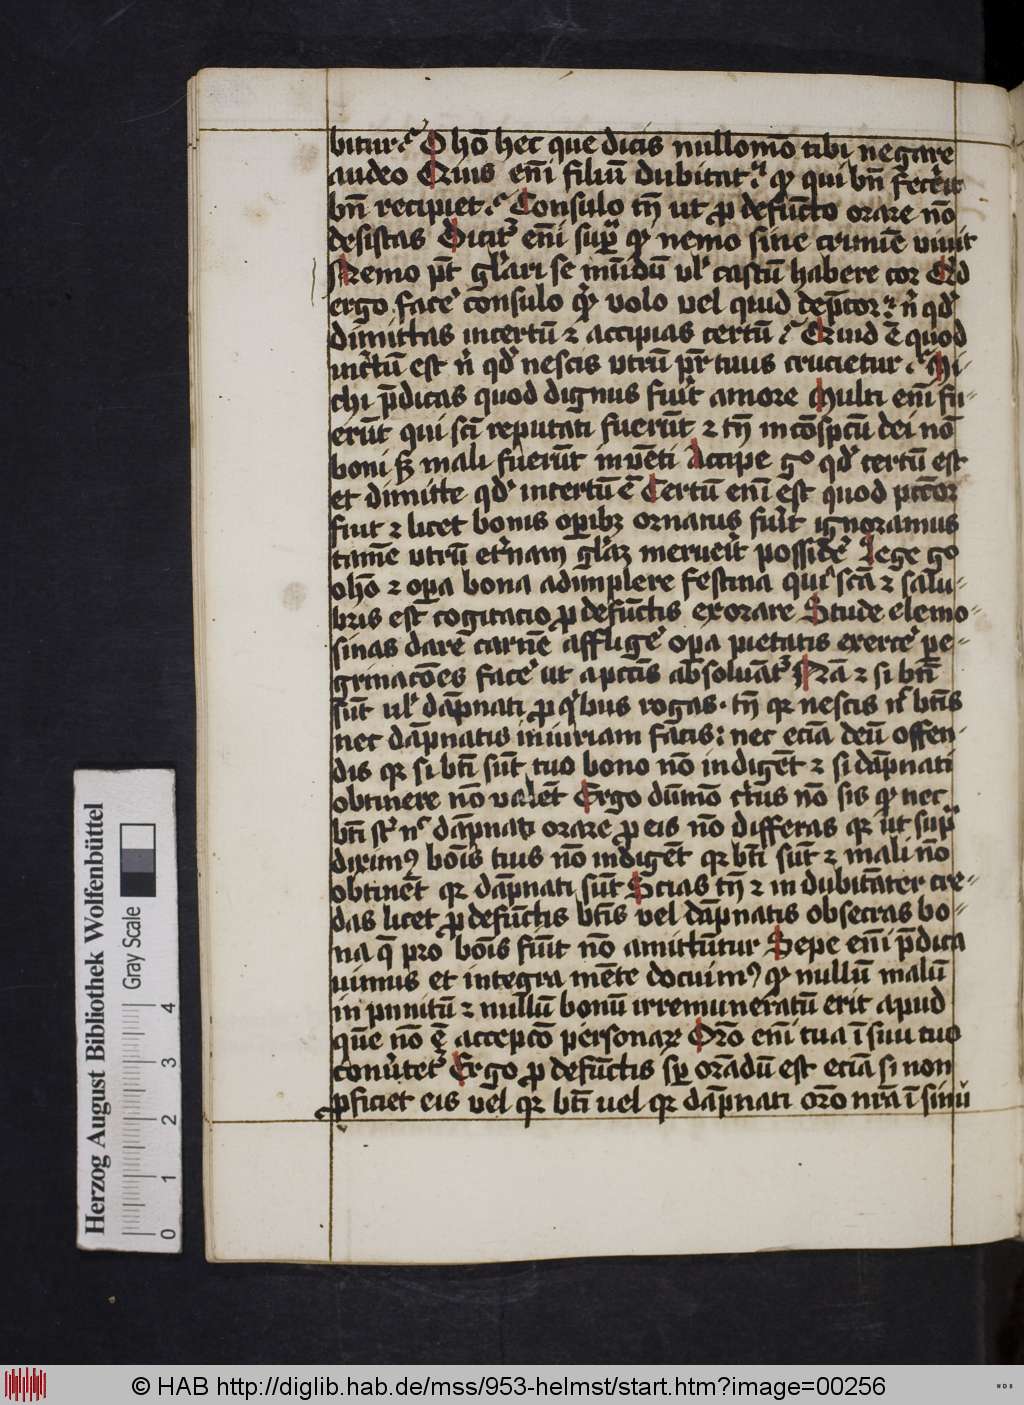 bitur? O hō hec que dicis nullomō tibi negare
audeo Cuius eñi filiū dubitat? qꝫ qui bñ fecerit
bñ recipiet? Consulo tñ ut ꝓ defūcto orare nō
desistas Dicitᷣ eñi supᷓ qꝫ nemo sine crimīe vivit
Nemo pt̄ gl̓ari se mūdū vl̓ castū habere cor Qd̓
ergo face᷑ cōsulo volo vel quid dep̄cor? n̓ qd̓
dimittas incertū ⁊ accipias certū? Quid ē quod
incertū est n̓ qd̓ nescis vtrū pr̄ tuus crucietur? Mi-
chi p̄dicas quod dignus fuit amore Multi eñi fu-
erūt qui sc̄i reputati fuerūt ⁊ tñ in cōspc̄tū dei nō
boni sꝫ mali fuerūt inuēti Accipe gͦ qd̓ certū est
et dimitte qd̓ incertū ē Certū enī est quod pccōr
fuit ⁊ licet bonis oꝑibꝫ ornatus fuit ignoramus
tamē vtrū et̓nam gl̓iaꝫ meruerit posside᷑ Lege gͦ
o hō ⁊ oꝑa bona adimplere festina quī scā ⁊ salu-
bris est cogitacio ꝓ defūctis exorare Stude elemo-
sinas dare carnē afflige᷑ oꝑa pietatis exerce᷑ pe-
grinacōes face᷑ ut a pcc̄is absoluāt᷑ Nā ⁊ si bt̄i
sūt ul̓ dāpnati ꝓ qͥbus rogas · tñ qꝛ nescis n̓ bt̄is
nec dāpnatis iniuriam facis: nec eciā deū offen-
dis qꝛ si bt̄i sūt tuo bono nō indigēt ⁊ si dāpnati
obtinere nō valēt Ergo dūmō cert̓us nō sis qꝫ nec
bt̄i st̓ n̓ dāpnati orare ꝓ eis nō differas qꝛ ut supᷓ
diximꝰ boīs tuis nō indigēt qꝛ bt̄i sūt ⁊ mali nō
obtinēt qꝛ dāpnati sūt Scias tñ ⁊ indubitāter cre-
das licet ꝓ defūctis bt̄is vel dāpnatis obsecras bo-
na q̄ pro boīs fiūt nō amittūtur Sepe eñi p̄dica
uimus et integra mēte docuimꝰ qꝫ nullū malū
in punitū ⁊ nullū bonū irremuneratū erit apud
quē nō ē accepcō personaꝝ Orō eñi tua ī sinu tuo
conu̓tet᷑ Ergo ꝓ defūctis sꝑ orādū est eciā si non
ꝓficiet eis vel qꝛ bt̄i uel qꝛ dāpnati orō nr̄a ī sinū
Herzog August Bibliothek Wolfenbüttel
Gray Scale
0 1 2 3 4
© HAB http://diglib.hab.de/mss/953-helmst/start.htm?image=00256